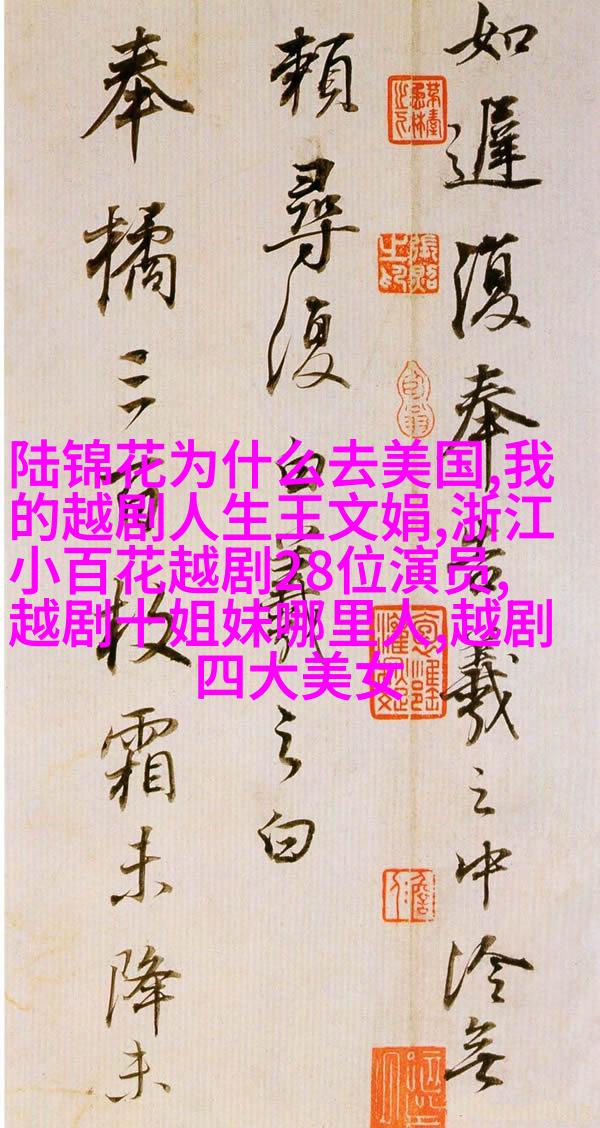 如遲復奉告羲之中冷無
賴尋復白羲之白
奉橘三百枚霜未降未
陆锦花为什么去美国,我
的越剧人生王文娟,浙江
小百花越剧28位演员,
越剧十姐妹哪里人,越剧
四大美女